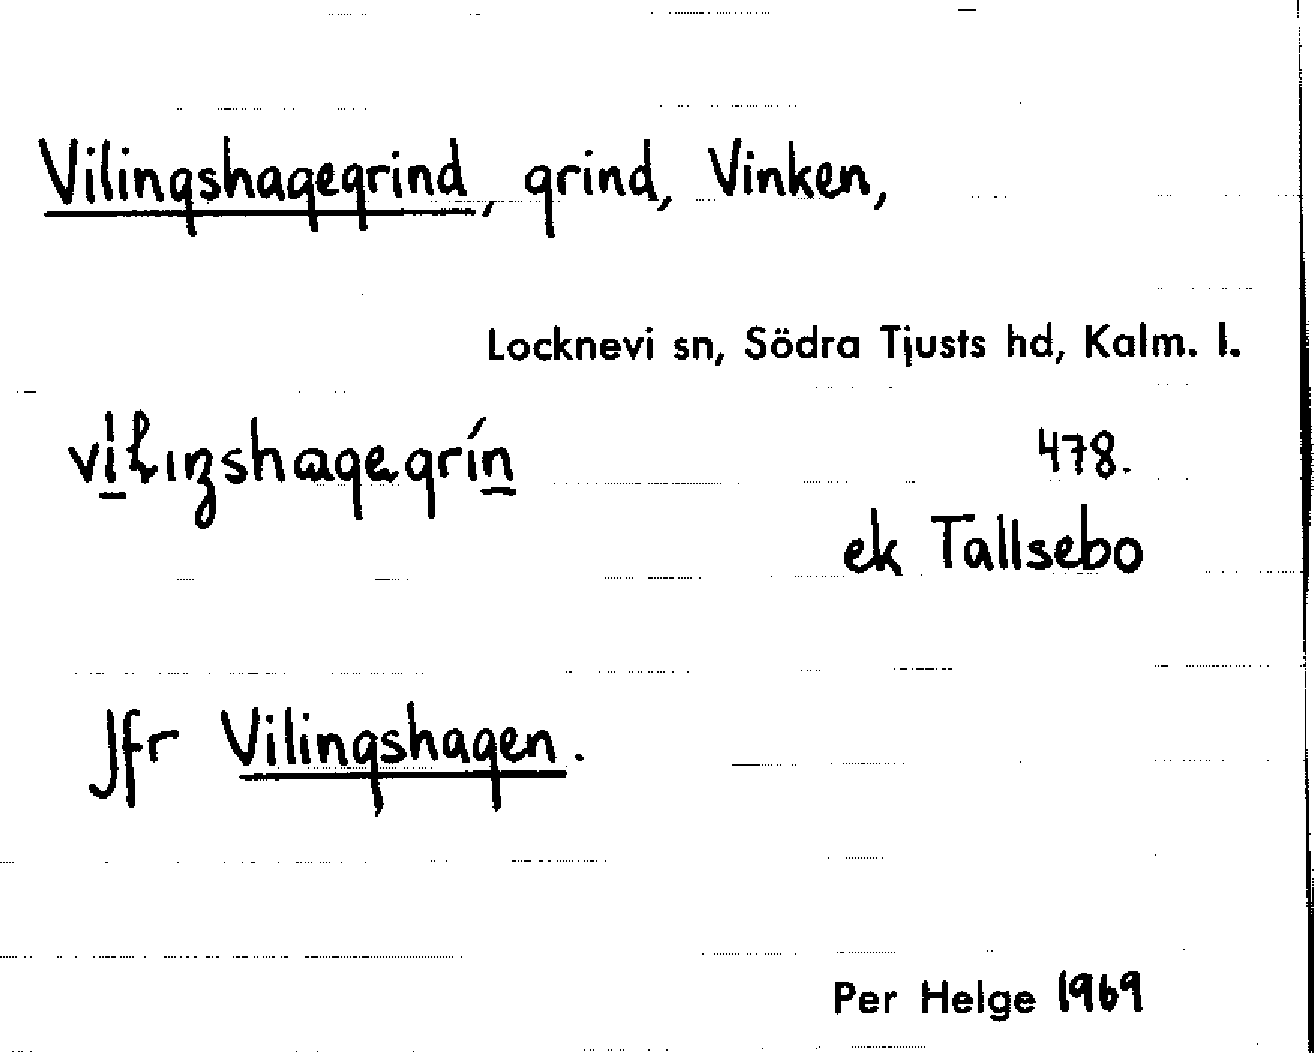 Vilingshagegrind, grind, Vinken,
Locknevi sn, Södra Tjusts hd, Kalm. l.
478.
ek Tallsebo
Jfr Vilingshagen.
Per Helge 1969